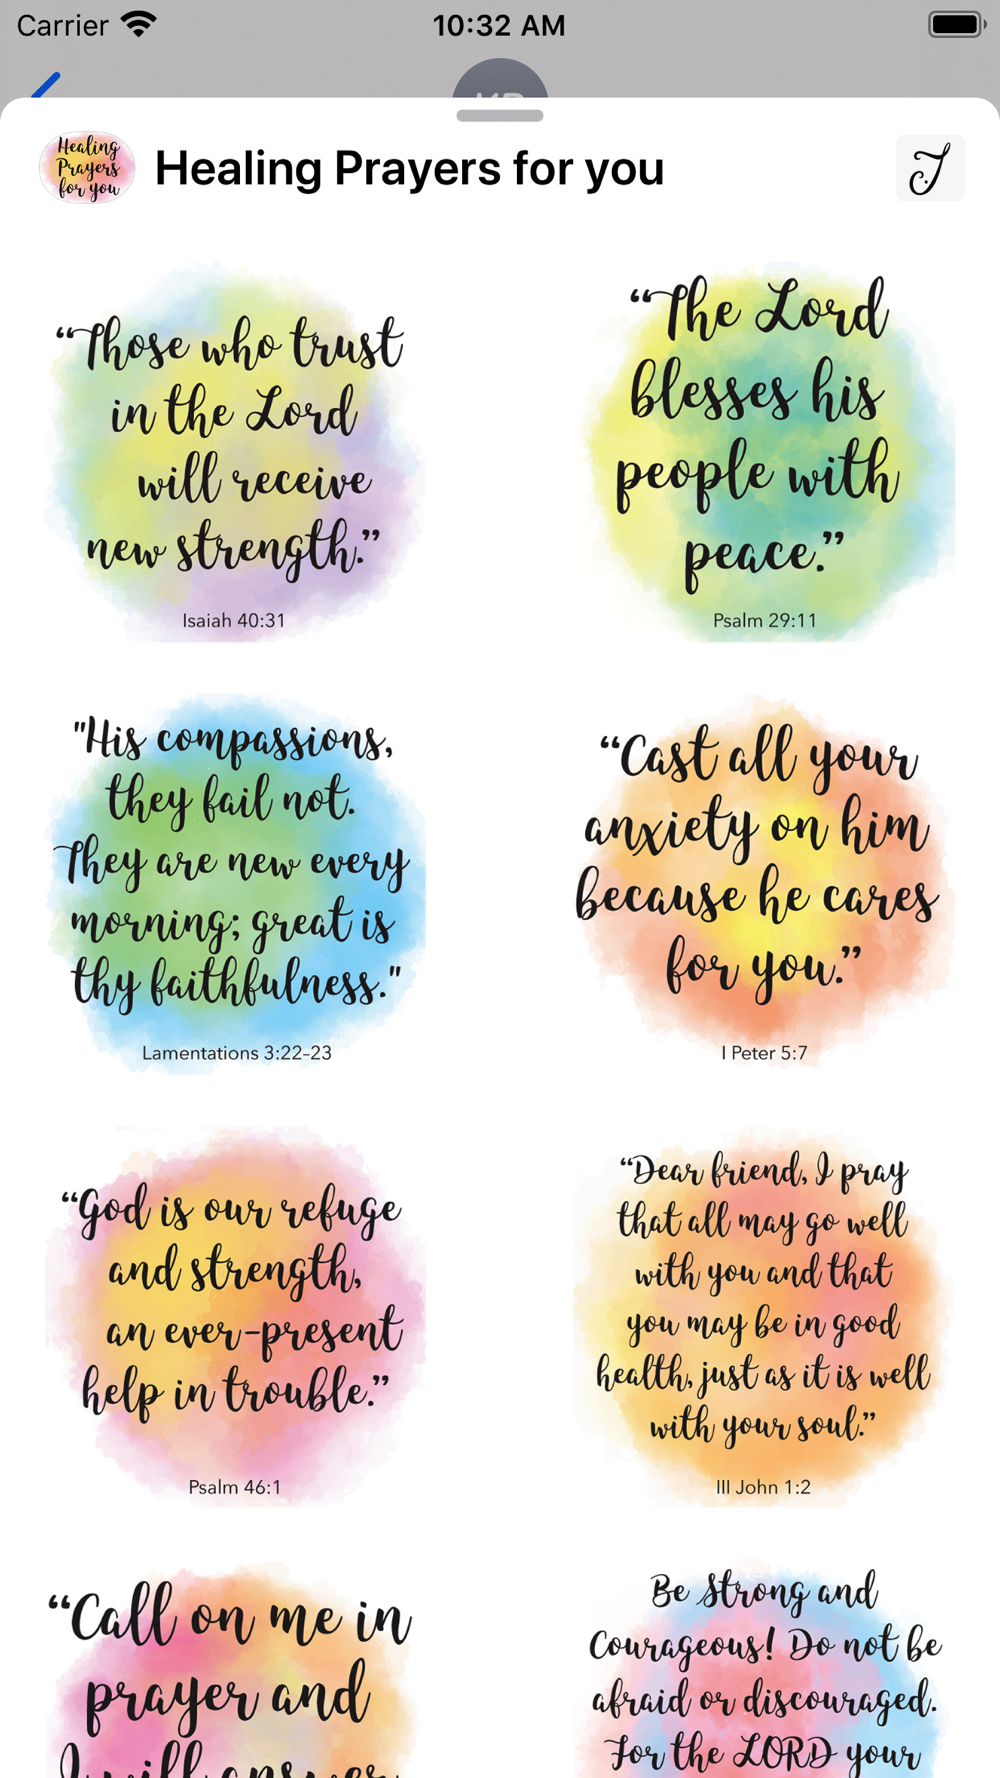 Carrier
10:32 AM
Healing
Prayers
for you
Healing Prayers for you
J
“Those who trust
in the Lord
will receive
new strength.”
Isaiah 40:31
“The Lord
blesses his
people with
peace.”
Psalm 29:11
"His compassions,
they fail not.
They are new every
morning; great is
thy faithfulness."
Lamentations 3:22-23
“Cast all your
anxiety on him
because he cares
for you.”
I Peter 5:7
“God is our refuge
and strength,
an ever-present
help in trouble.”
Psalm 46:1
“Dear friend, I pray
that all may go well
with you and that
you may be in good
health, just as it is well
with your soul.”
III John 1:2
“Call on me in
prayer and
I will answer
Be Strong and
Courageous! Do not be
afraid or discouraged.
For the LORD your